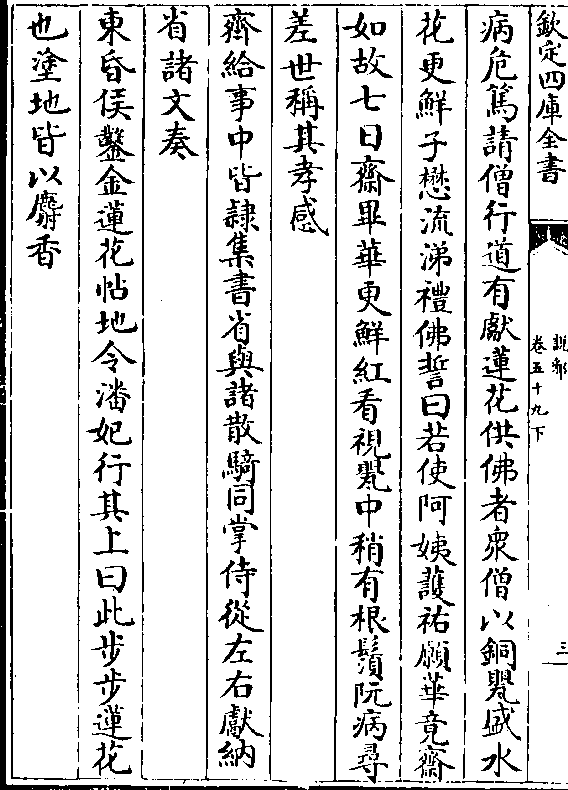 欽定四庫全書
說郛
卷五十九下
三
病危篤請僧行道有獻蓮花供佛者衆僧以銅甖盛水
花更鮮子懋流涕禮佛誓曰若使阿姨護祐願華竟齋
如故七日齋畢華更鮮紅看視甖中稍有根鬚阮病尋
差世稱其孝感
齊給事中皆隷集書省與諸散騎同掌侍從左右獻納
省諸文奏
東昏侯鑿金蓮花帖地令潘妃行其上曰此步步蓮花
也塗地皆以麝香